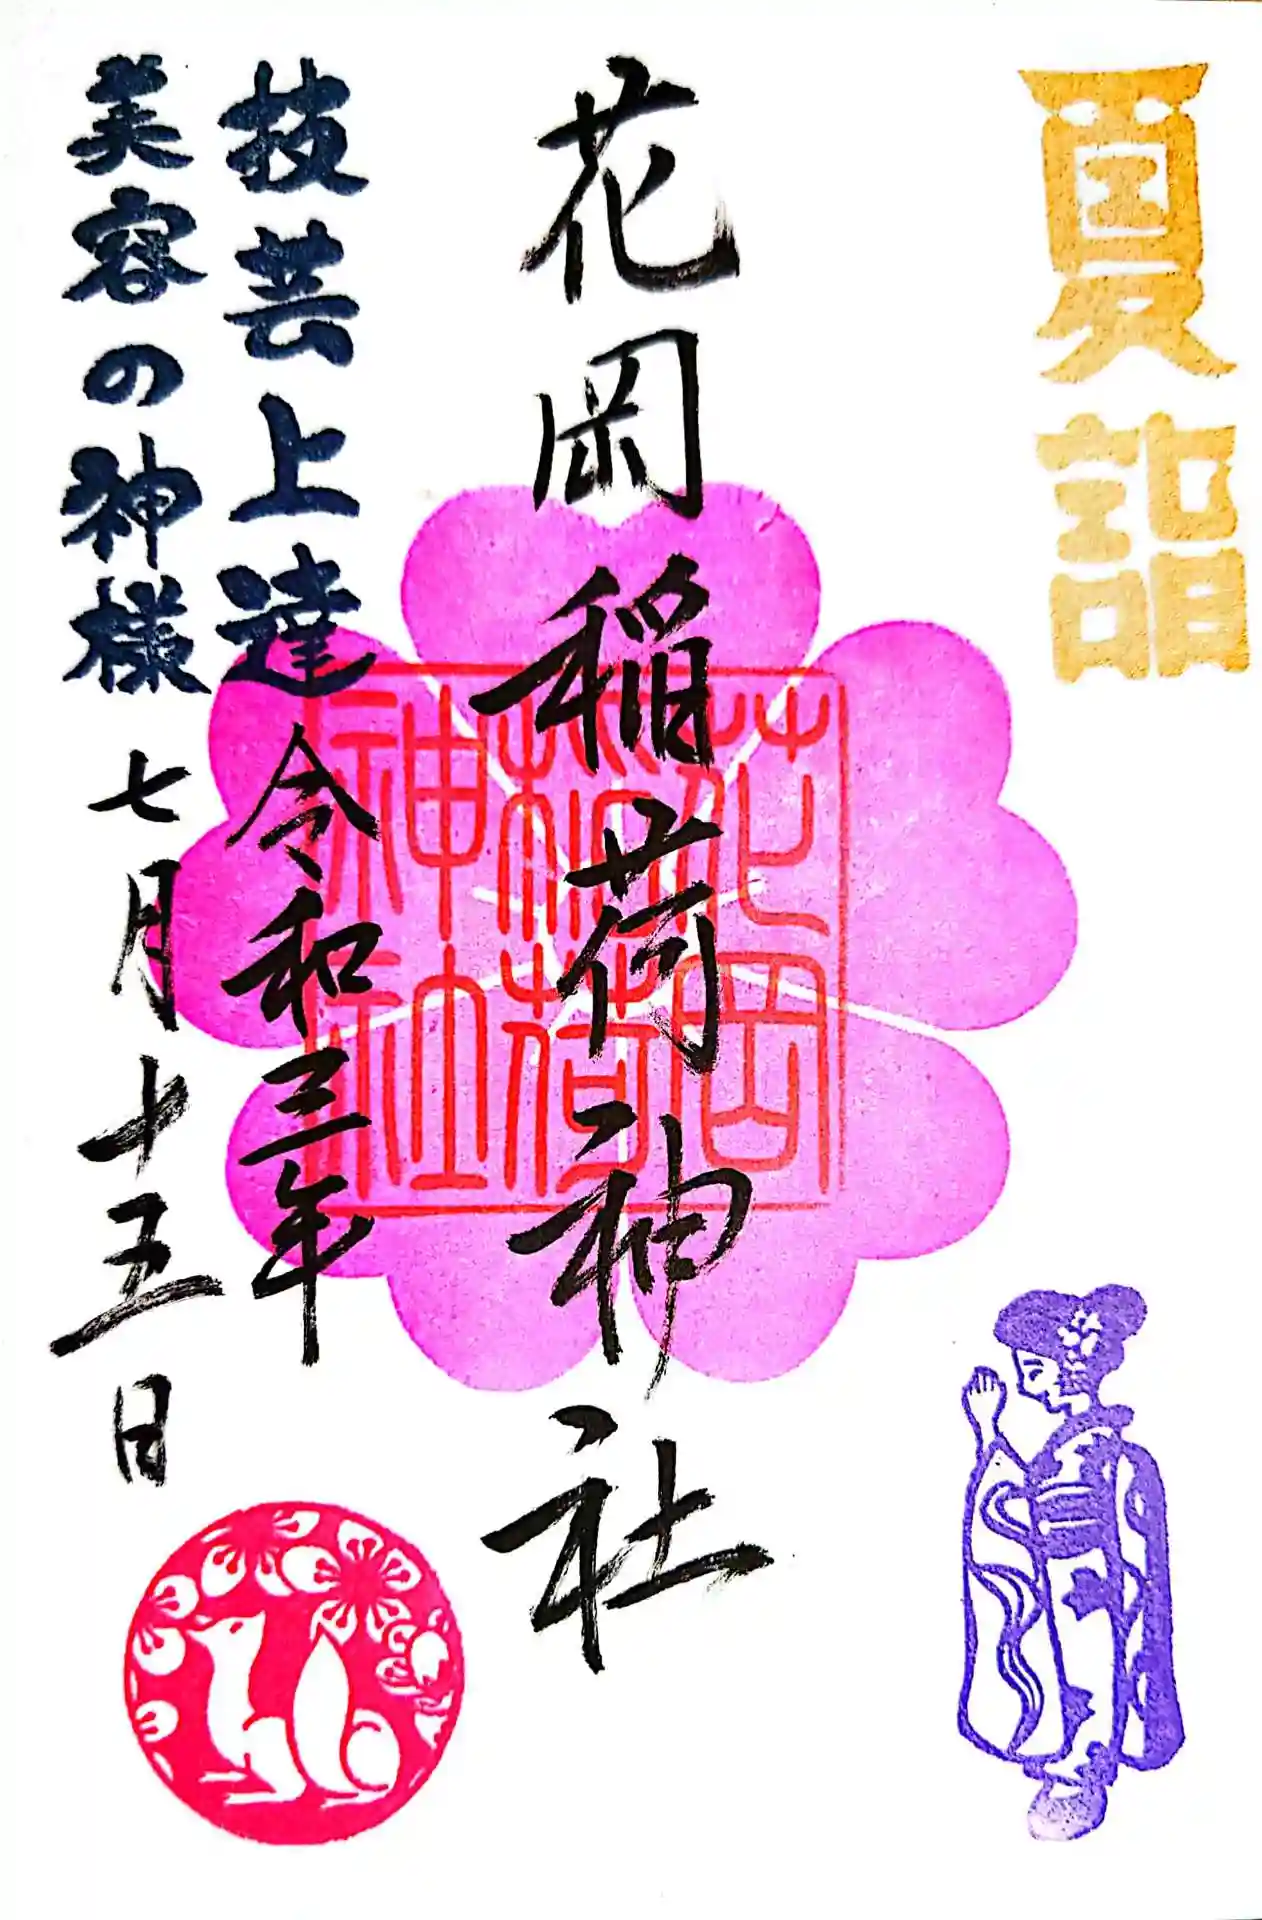 夏詣
花岡稲荷神社
花岡
稲荷
神社
技芸上達
令和三年
美容の神様
七月十五日